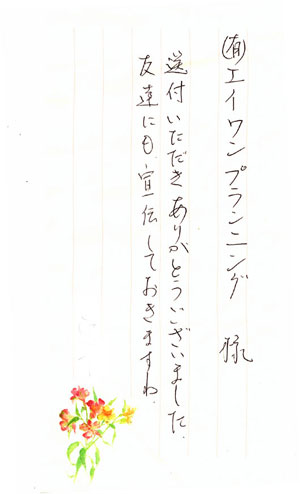 ㈲エイワンプランニング 様
送付いただきありがとうございました.
友達にも.宣伝しておきますね.